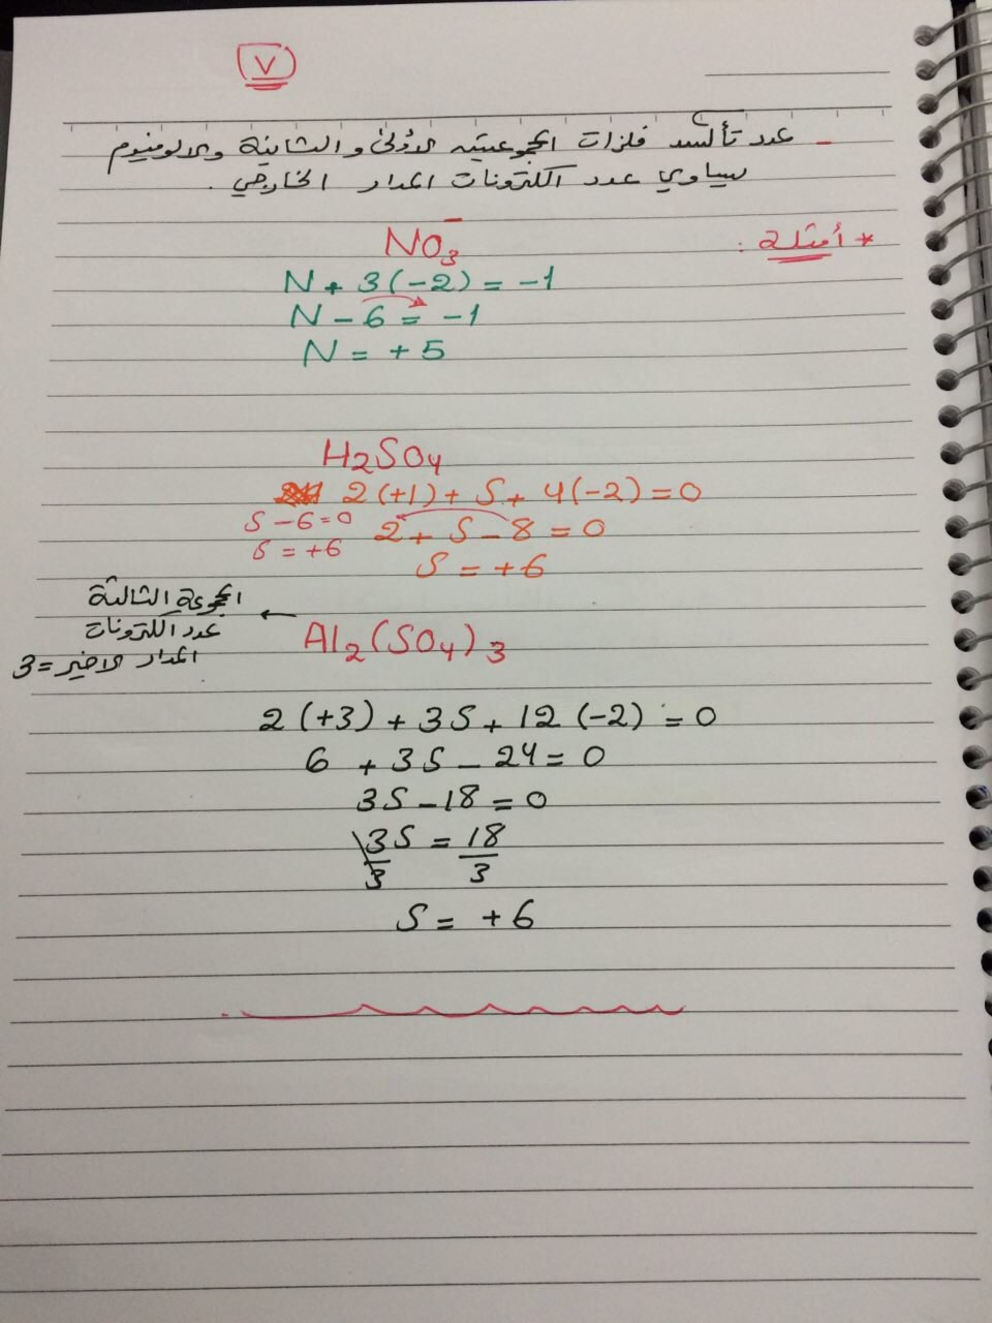 ٧
- عدد تأكسد فلزات المجموعتين الأولى و الثانية والالومنيوم
يساوي عدد الكترونات المدار الخارجي .
* أمثلة :
NO₃⁻
N + 3(-2) = -1
N - 6 = -1
N = + 5
H₂SO₄
2(+1) + S + 4(-2) = 0
2 + S - 8 = 0
S - 6 = 0
S = +6
S = +6
Al₂(SO₄)₃
← المجموعة الثالثة
عدد الكترونات
المدار الاخير = 3
2(+3) + 3S + 12(-2) = 0
6 + 3S - 24 = 0
3S - 18 = 0
3S/3 = 18/3
S = +6